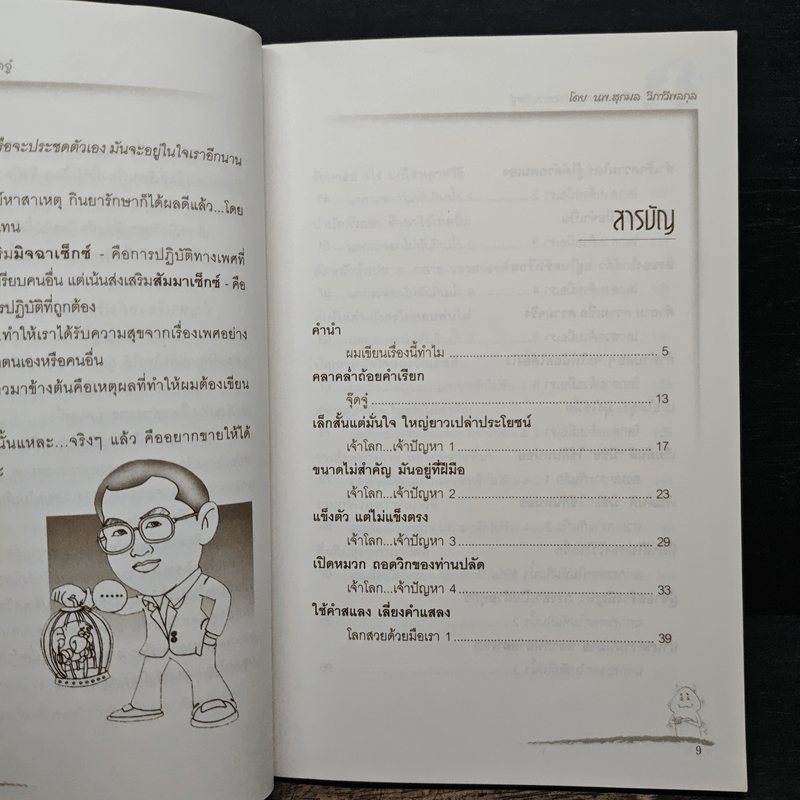 รือจะประชดตัวเอง มันจะอยู่ในใจเราอีกนาน
หาสาเหตุ กินยารักษาก็ได้ผลดีแล้ว...โดย
แทน
ริมมิจฉาเซ็กซ์ - คือการปฏิบัติทางเพศที่
ปรียบคนอื่น แต่เน้นส่งเสริมสัมมาเซ็กซ์ - คือ
รปฏิบัติที่ถูกต้อง
ทำให้เราได้รับความสุขจากเรื่องเพศอย่าง
ตนเองหรือคนอื่น
วมาข้างต้นคือเหตุผลที่ทำให้ผมต้องเขียน
นั้นแหละ...จริงๆ แล้ว คืออยากขายให้ได้
.....
โดย นพ.สุกมล วิภาวีพลกุล
สารบัญ
คำนำ
ผมเขียนเรื่องนี้ทำไม ... 5
คลาคล่ำถ้อยคำเรียก
จุ๊ดจู๋ ... 13
เล็กสั้นแต่มั่นใจ ใหญ่ยาวเปล่าประโยชน์
เจ้าโลก...เจ้าปัญหา 1 ... 17
ขนาดไม่สำคัญ มันอยู่ที่ฝีมือ
เจ้าโลก...เจ้าปัญหา 2 ... 23
แข็งตัว แต่ไม่แข็งตรง
เจ้าโลก...เจ้าปัญหา 3 ... 29
เปิดหมวก ถอดวิกของท่านปลัด
เจ้าโลก...เจ้าปัญหา 4 ... 33
ใช้คำสแลง เลี่ยงคำแสลง
โลกสวยด้วยมือเรา 1 ... 39
9